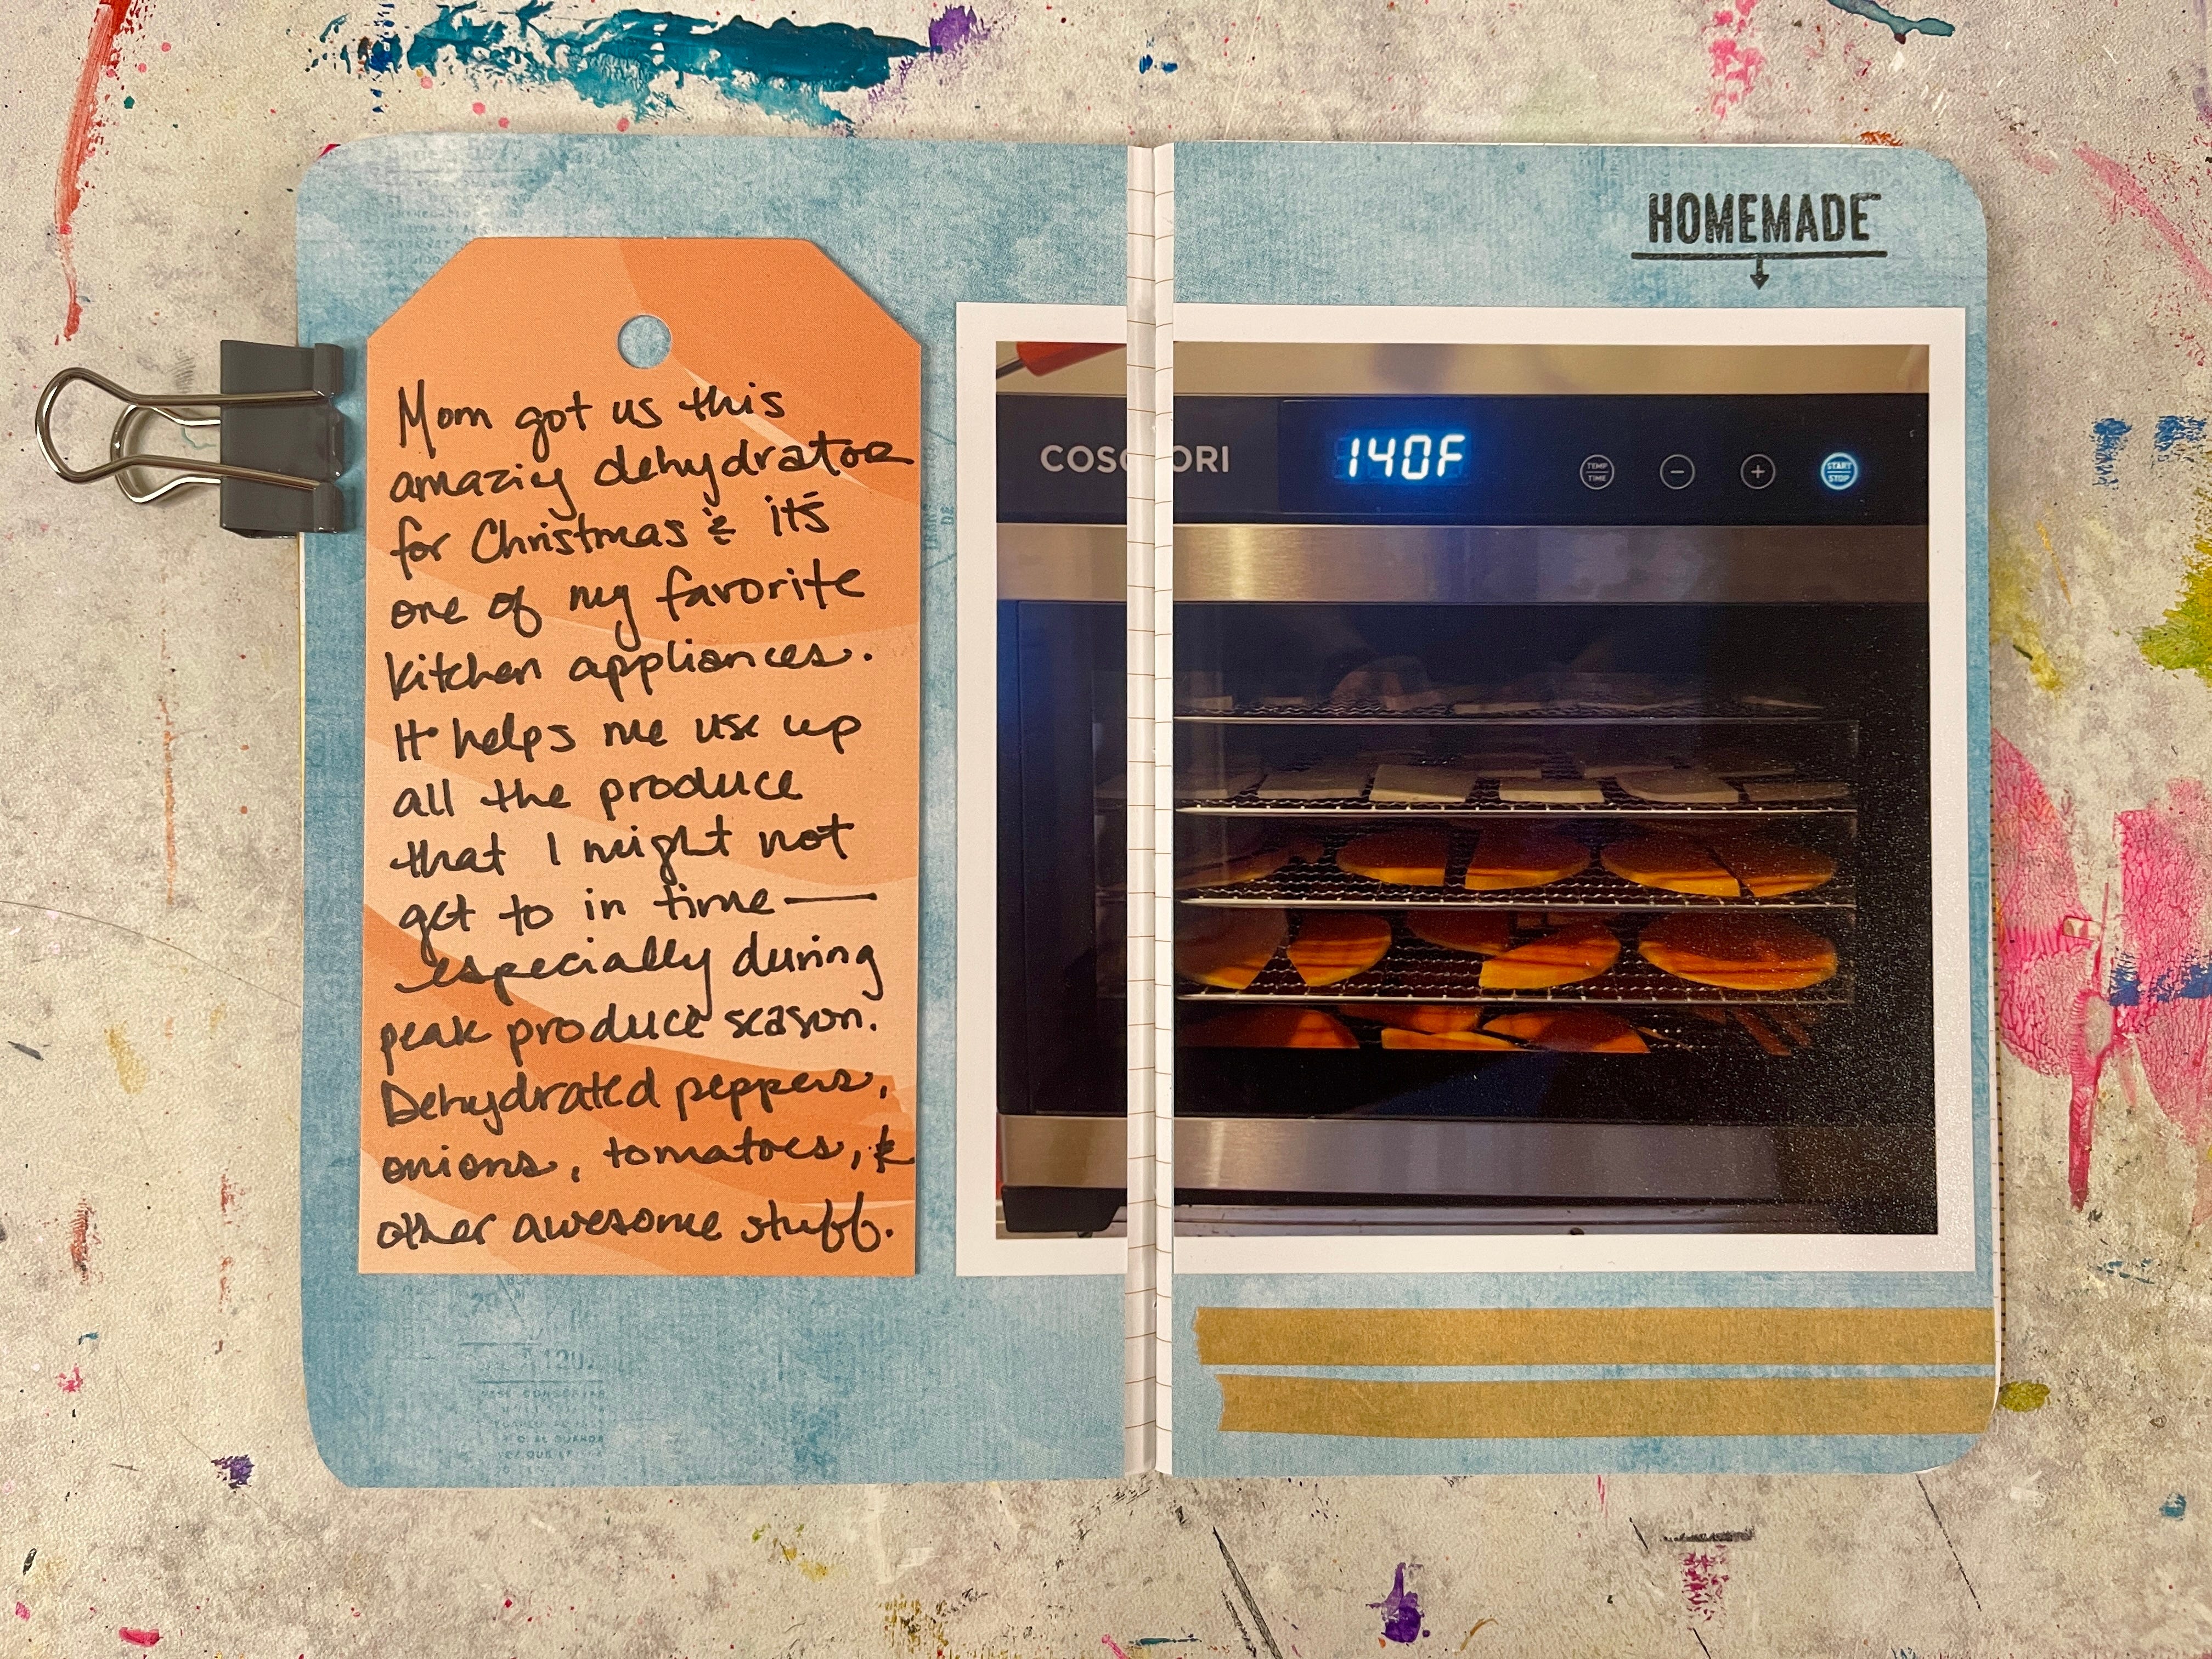 Mom got us this
amazing dehydrator
for Christmas & it's
one of my favorite
kitchen appliances.
It helps me use up
all the produce
that I might not
get to in time —
especially during
peak produce season.
Dehydrated peppers,
onions, tomatoes, &
other awesome stuff.
HOMEMADE
COSORI
140F
TEMP
TIME
−
+
START
STOP